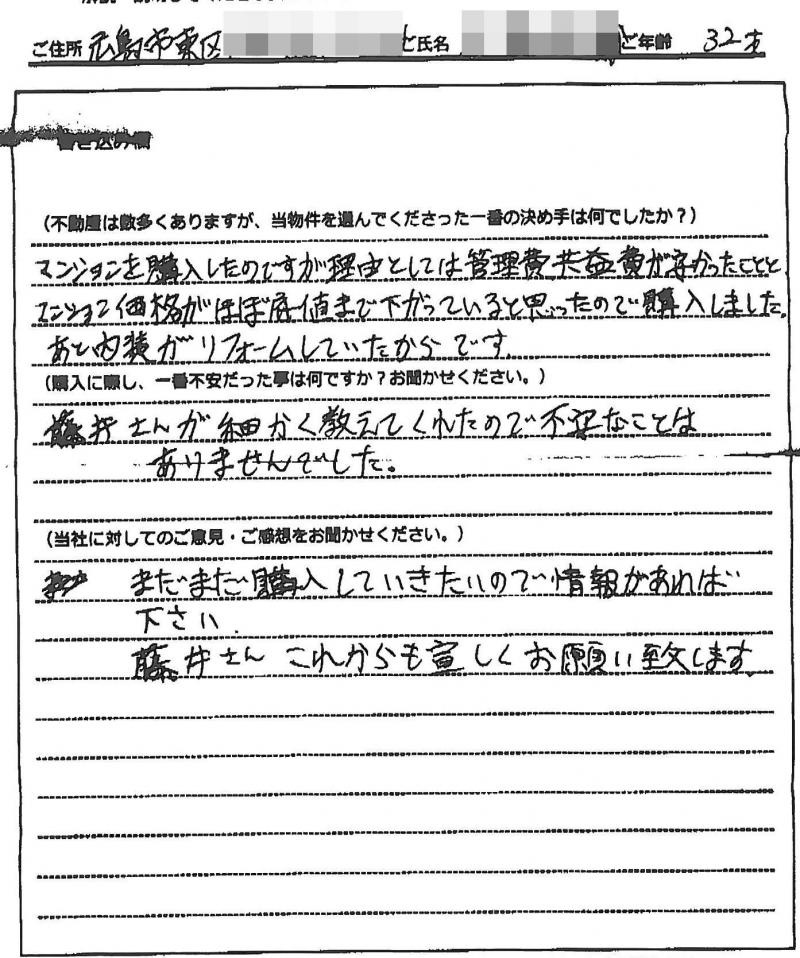 ご住所 広島市東区 ご氏名 ご年齢 32才
(不動産は数多くありますが、当物件を選んでくださった一番の決め手は何でしたか？)
マンションを購入したのですが理由としては管理費共益費が安かったことと、
マンション価格がほぼ底値まで下がっていると思ったので購入しました。
あと内装がリフォームしていたからです。
(購入に際し、一番不安だった事は何ですか？お聞かせください。)
藤井さんが細かく教えてくれたので不安なことは
ありませんでした。
(当社に対してのご意見・ご感想をお聞かせください。)
まだまだ購入していきたいので情報があれば
下さい.
藤井さん これからも宜しくお願い致します。